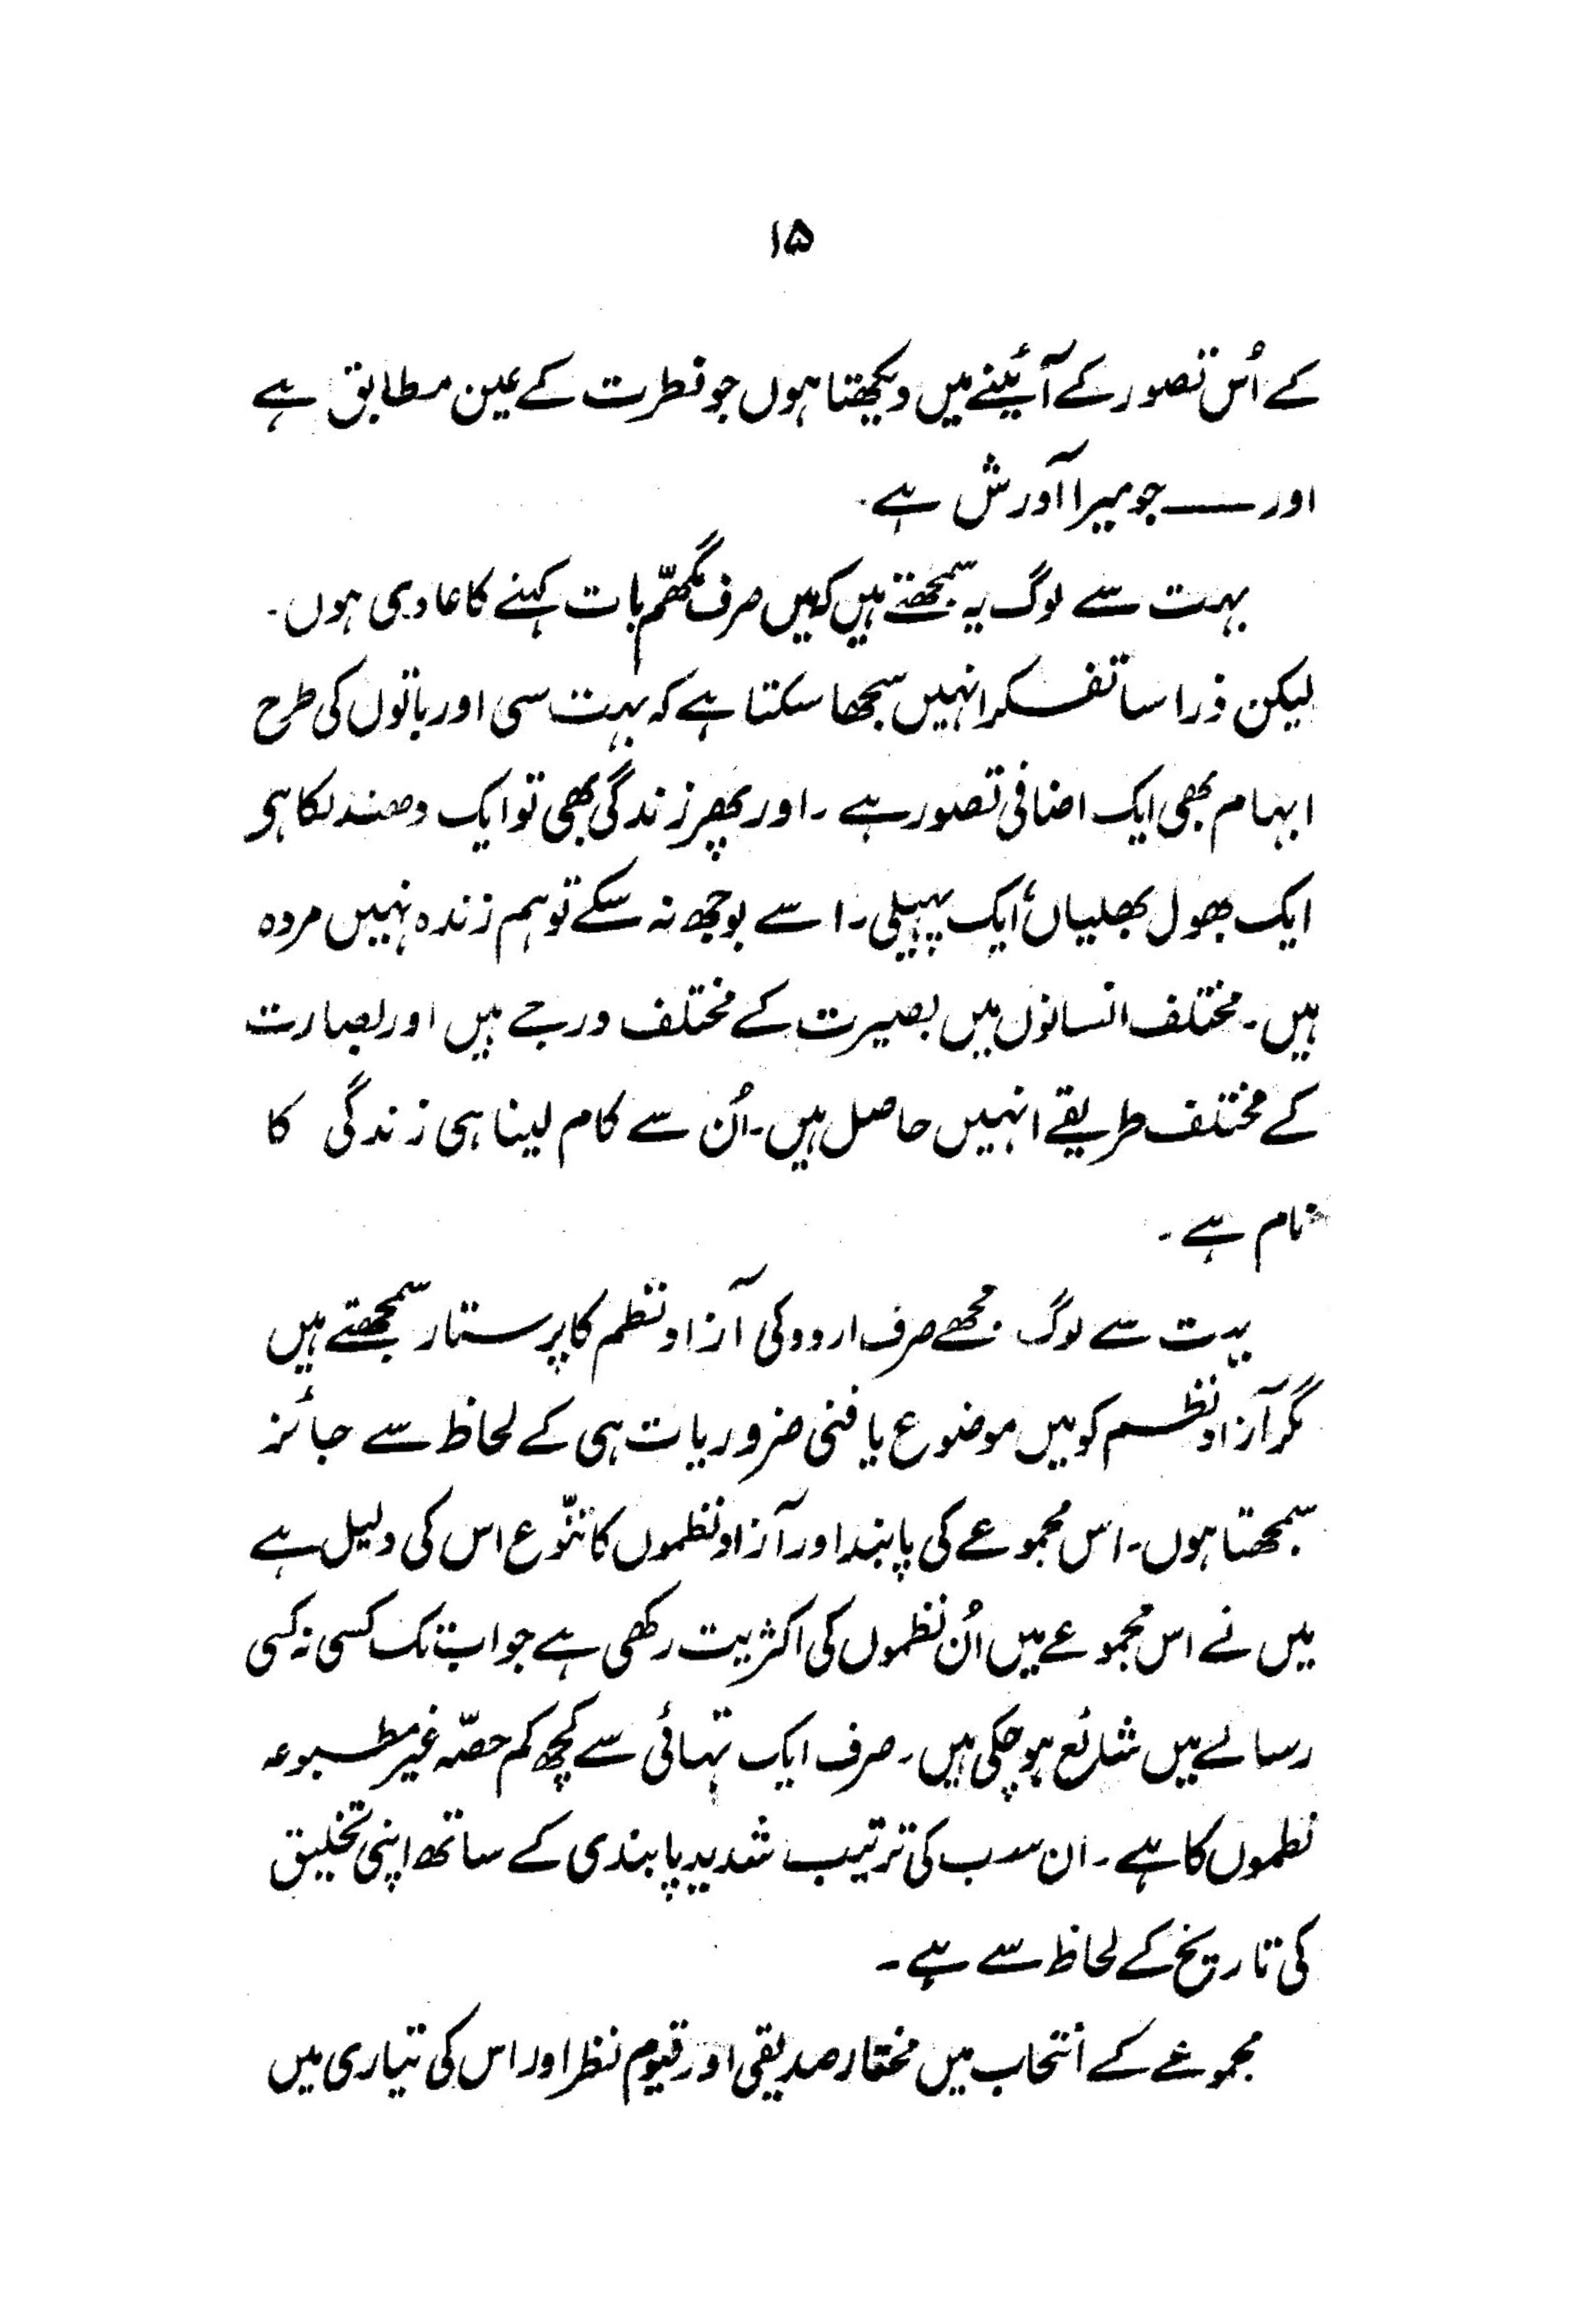 ۱۵
کے اُس تصور کے آئینے میں دیکھتا ہوں جو فطرت کے عین مطابق ہے
اور ـــــ جو میرا آدرش ہے۔
بہت سے لوگ یہ سمجھتے ہیں کہ میں صرف مُبہم بات کہنے کا عادی ہوں۔
لیکن ذرا سا تفکر انہیں سمجھا سکتا ہے کہ بہت سی اور باتوں کی طرح
ابہام بھی ایک اضافی تصور ہے۔ اور پھر زندگی بھی تو ایک دھندلکا ہی
ایک بھول بھلیاں، ایک پہیلی۔ اسے بوجھ نہ سکے تو ہم زندہ نہیں مردہ
ہیں۔ مختلف انسانوں میں بصیرت کے مختلف درجے ہیں اور بصارت
کے مختلف طریقے انہیں حاصل ہیں۔ اُن سے کام لینا ہی زندگی کا
نام ہے۔
بہت سے لوگ مجھے صرف اردو کی آزاد نظم کا پرستار سمجھتے ہیں
مگر آزاد نظم کو میں موضوع یا فنی ضروریات ہی کے لحاظ سے جائز
سمجھتا ہوں۔ اس مجموعے کی پابند اور آزاد نظموں کا تنوّع اس کی دلیل ہے
میں نے اس مجموعے میں اُن نظموں کی اکثریت رکھی ہے جو اب تک کسی نہ کسی
رسالے میں شائع ہو چکی ہیں۔ صرف ایک تہائی سے کچھ کم حصّہ غیر مطبوعہ
نظموں کا ہے۔ ان سب کی ترتیب شدید پابندی کے ساتھ اپنی تخلیق
کی تاریخ کے لحاظ سے ہے۔
مجموعے کے انتخاب میں مختار صدیقی اور قیوم نظر اور اس کی تیاری میں